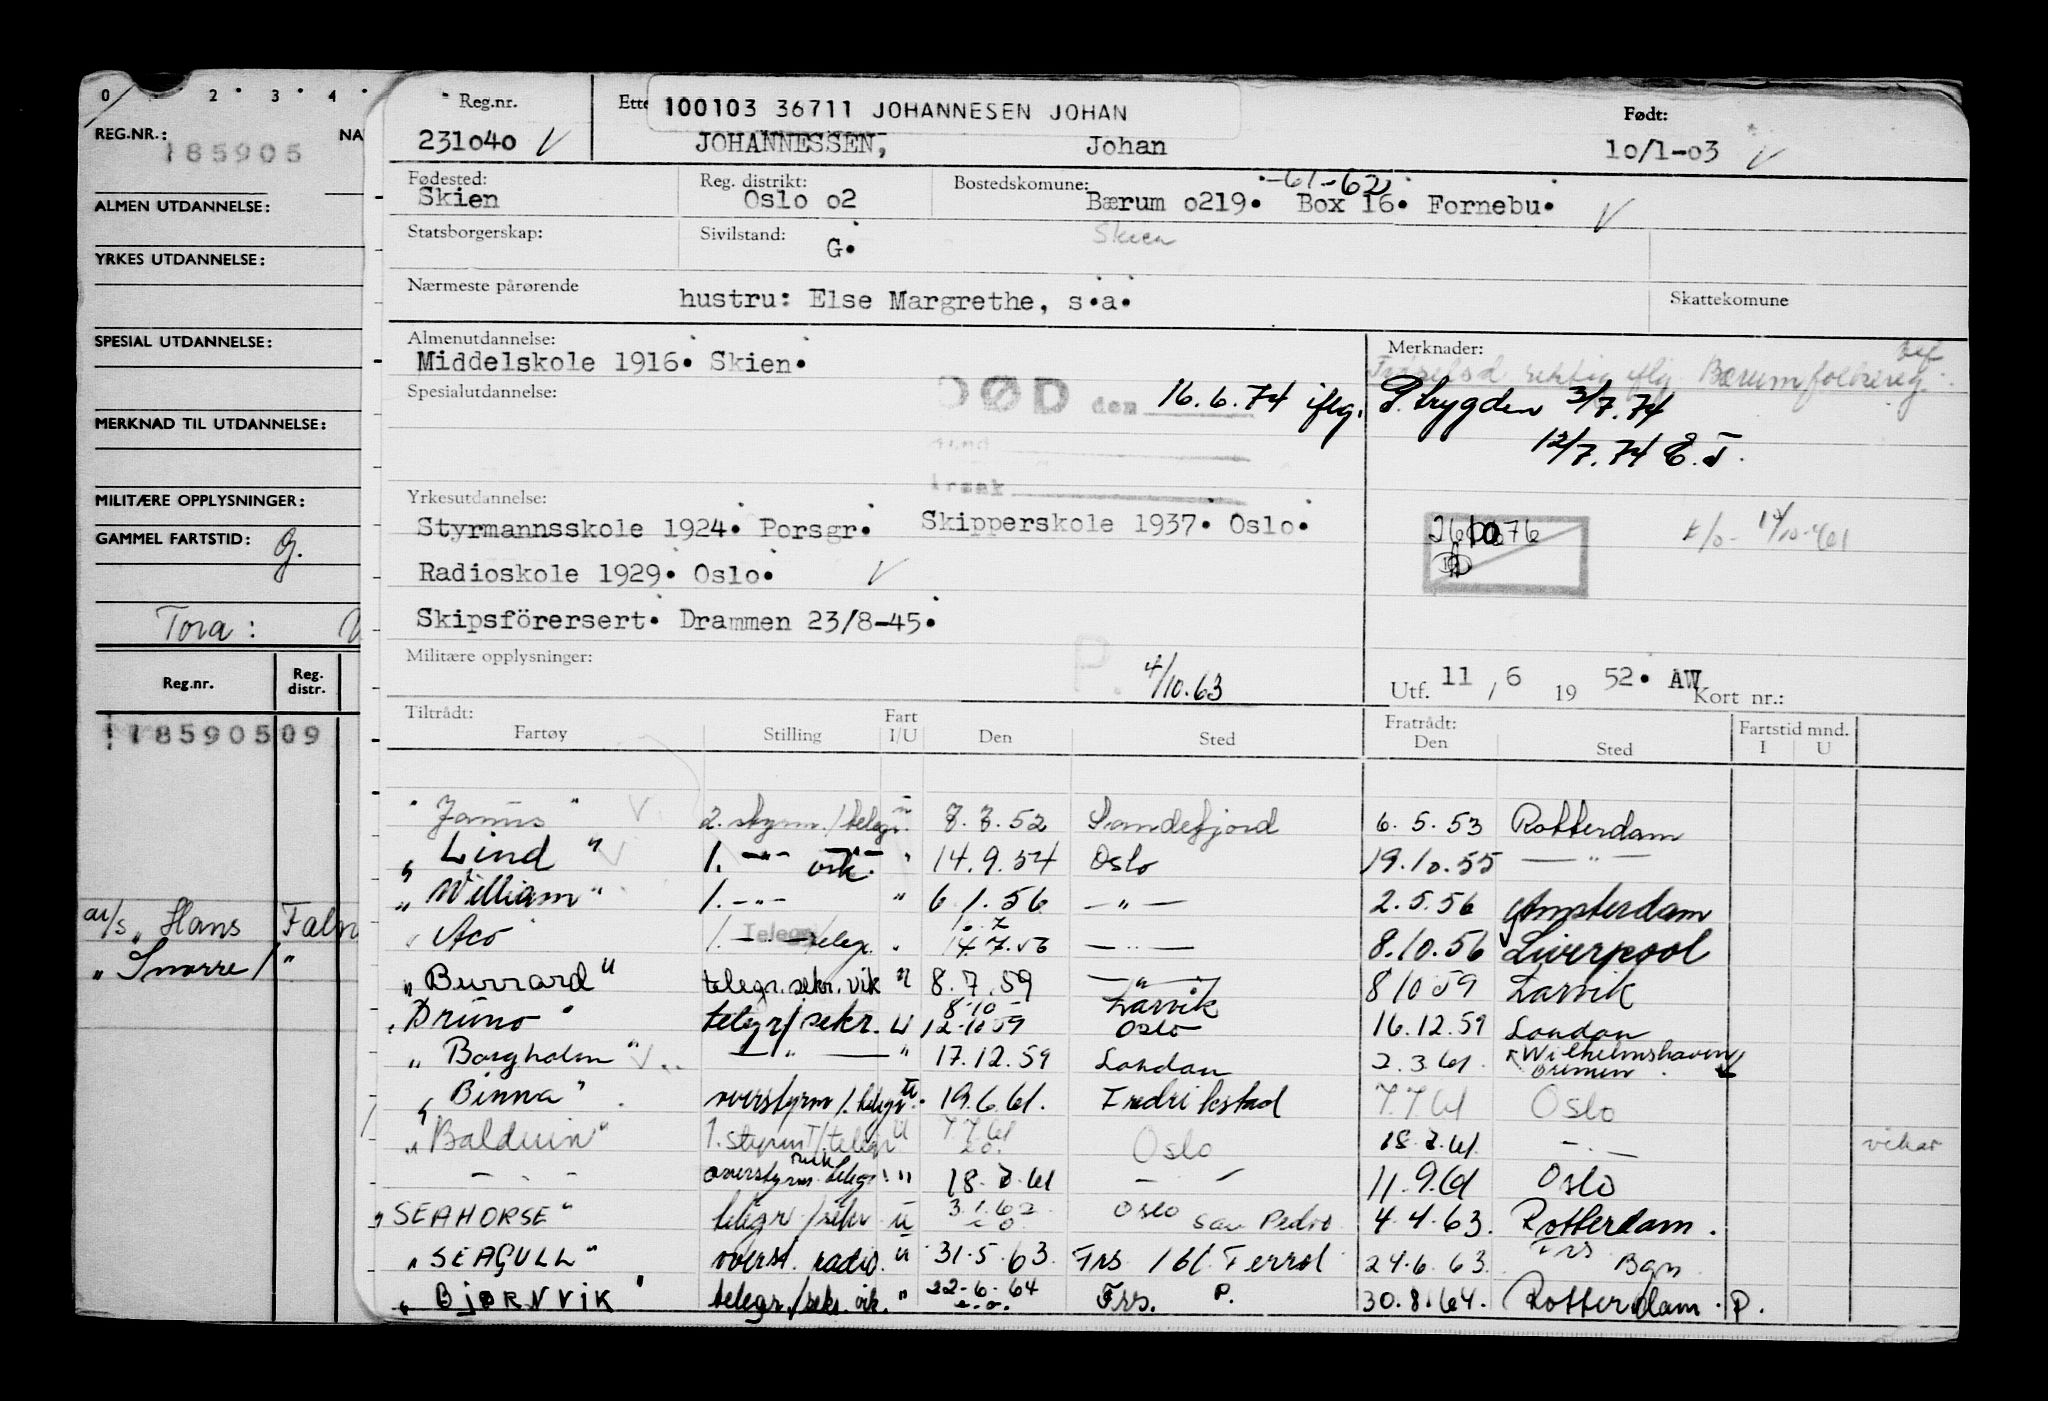 0 2 · 3 · 4 ·
REG.NR.: NA
185905
ALMEN UTDANNELSE:
YRKES UTDANNELSE:
SPESIAL UTDANNELSE:
MERKNAD TIL UTDANNELSE:
MILITÆRE OPPLYSNINGER:
GAMMEL FARTSTID: G.
Tora:
Reg.nr. Reg. distr.
118590509
m/s „Hans Faln
„ Snorre / "
Reg.nr. Ette 100103 36711 JOHANNESEN JOHAN Født:
231040 V JOHANNESSEN, Johan 10/1-03 V
Fødested: Reg. distrikt: Bostedskomune: -61-62
Skien Oslo 02 Bærum 0219. Box 16. Fornebu. V
Statsborgerskap: Sivilstand: G. Skien
Nærmeste pårørende hustru: Else Margrethe, s.a. Skattekomune
Almenutdannelse: Merknader:
Middelskole 1916. Skien.
Bærum folkereg.
Spesialutdannelse: DØD den 16.6.74 iflg. P.trygden 3/7.74
12/7.74 E.J.
årsak
Yrkesutdannelse:
Styrmannsskole 1924. Porsgr. Skipperskole 1937. Oslo.
Radioskole 1929. Oslo. V
Skipsförersert. Drammen 23/8-45.
Militære opplysninger: P. 4/10.63
Utf. 11 / 6 19 52. AW Kort nr.:
Tiltrådt: Fratrådt: Fartstid mnd.
Fartøy Stilling Fart I/U Den Sted Den Sted I U
" Janus " V. 2. styrm./telegr. u 8.3.52 Sandefjord 6.5.53 Rotterdam
„ Lind " V 1. -"- vik. " 14.9.54 Oslo 19.10.55 — " —
„ William " 1. -"- " 6.1.56 — " — 2.5.56 Amsterdam
Aco 1. -"- telegr. " 14.7.56 — " — 8.10.56 Liverpool
„ Burrard " telegr. sekr. vik " 8.7.59 — " — 8 10 59 Larvik
8-10 Larvik
„ Bruno " telegr/sekr. U 12-10 59 Oslo 16.12.59 London
„ Borgholm " V — " — " 17.12.59 London 2.3.61 Wilhelmshaven
Bremen
„ Binna " overstyrm/.telegr. u. 19.6.61. Fredrikstad 7.7.61 Oslo
„ Balduin " 1. styrm/telegr. U 7.7.61 Oslo 18.7.61 — " — vikar
— " — overstyrm. telegr. " 18.7.61 — " — 11.9.61 Oslo
„ SEAHORSE " telegr./sekr u 3.1.62 Oslo San Pedro 4.4.63. Rotterdam.
„ SEAGULL " overst. radio. u 31.5.63. Frs / bl. Ferrol 24.6.63. Frs Bgn
„ BJØRNVIK " telegr./sekr. vik. " 22-6-64 Frs. P. 30.8.64. Rotterdam. P.